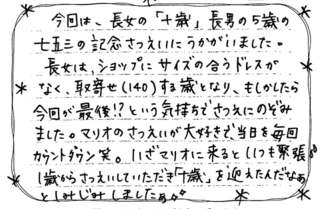 今回は、長女の「十歳」長男の5歳の
七五三の記念さつえいにうかがいました。
長女は、ショップにサイズの合うドレスが
なく、取寄せ(140)する歳となり、もしかしたら
今回が最後!?という気持ちでさつえにのぞみ
ました。マリオのさつえいが大好きで当日を毎回
カウントダウン笑。いざマリオに来るといつも緊張
1歳からさつえいしていただき「十歳」を迎えたんだなぁ
としみじみしましたぁ